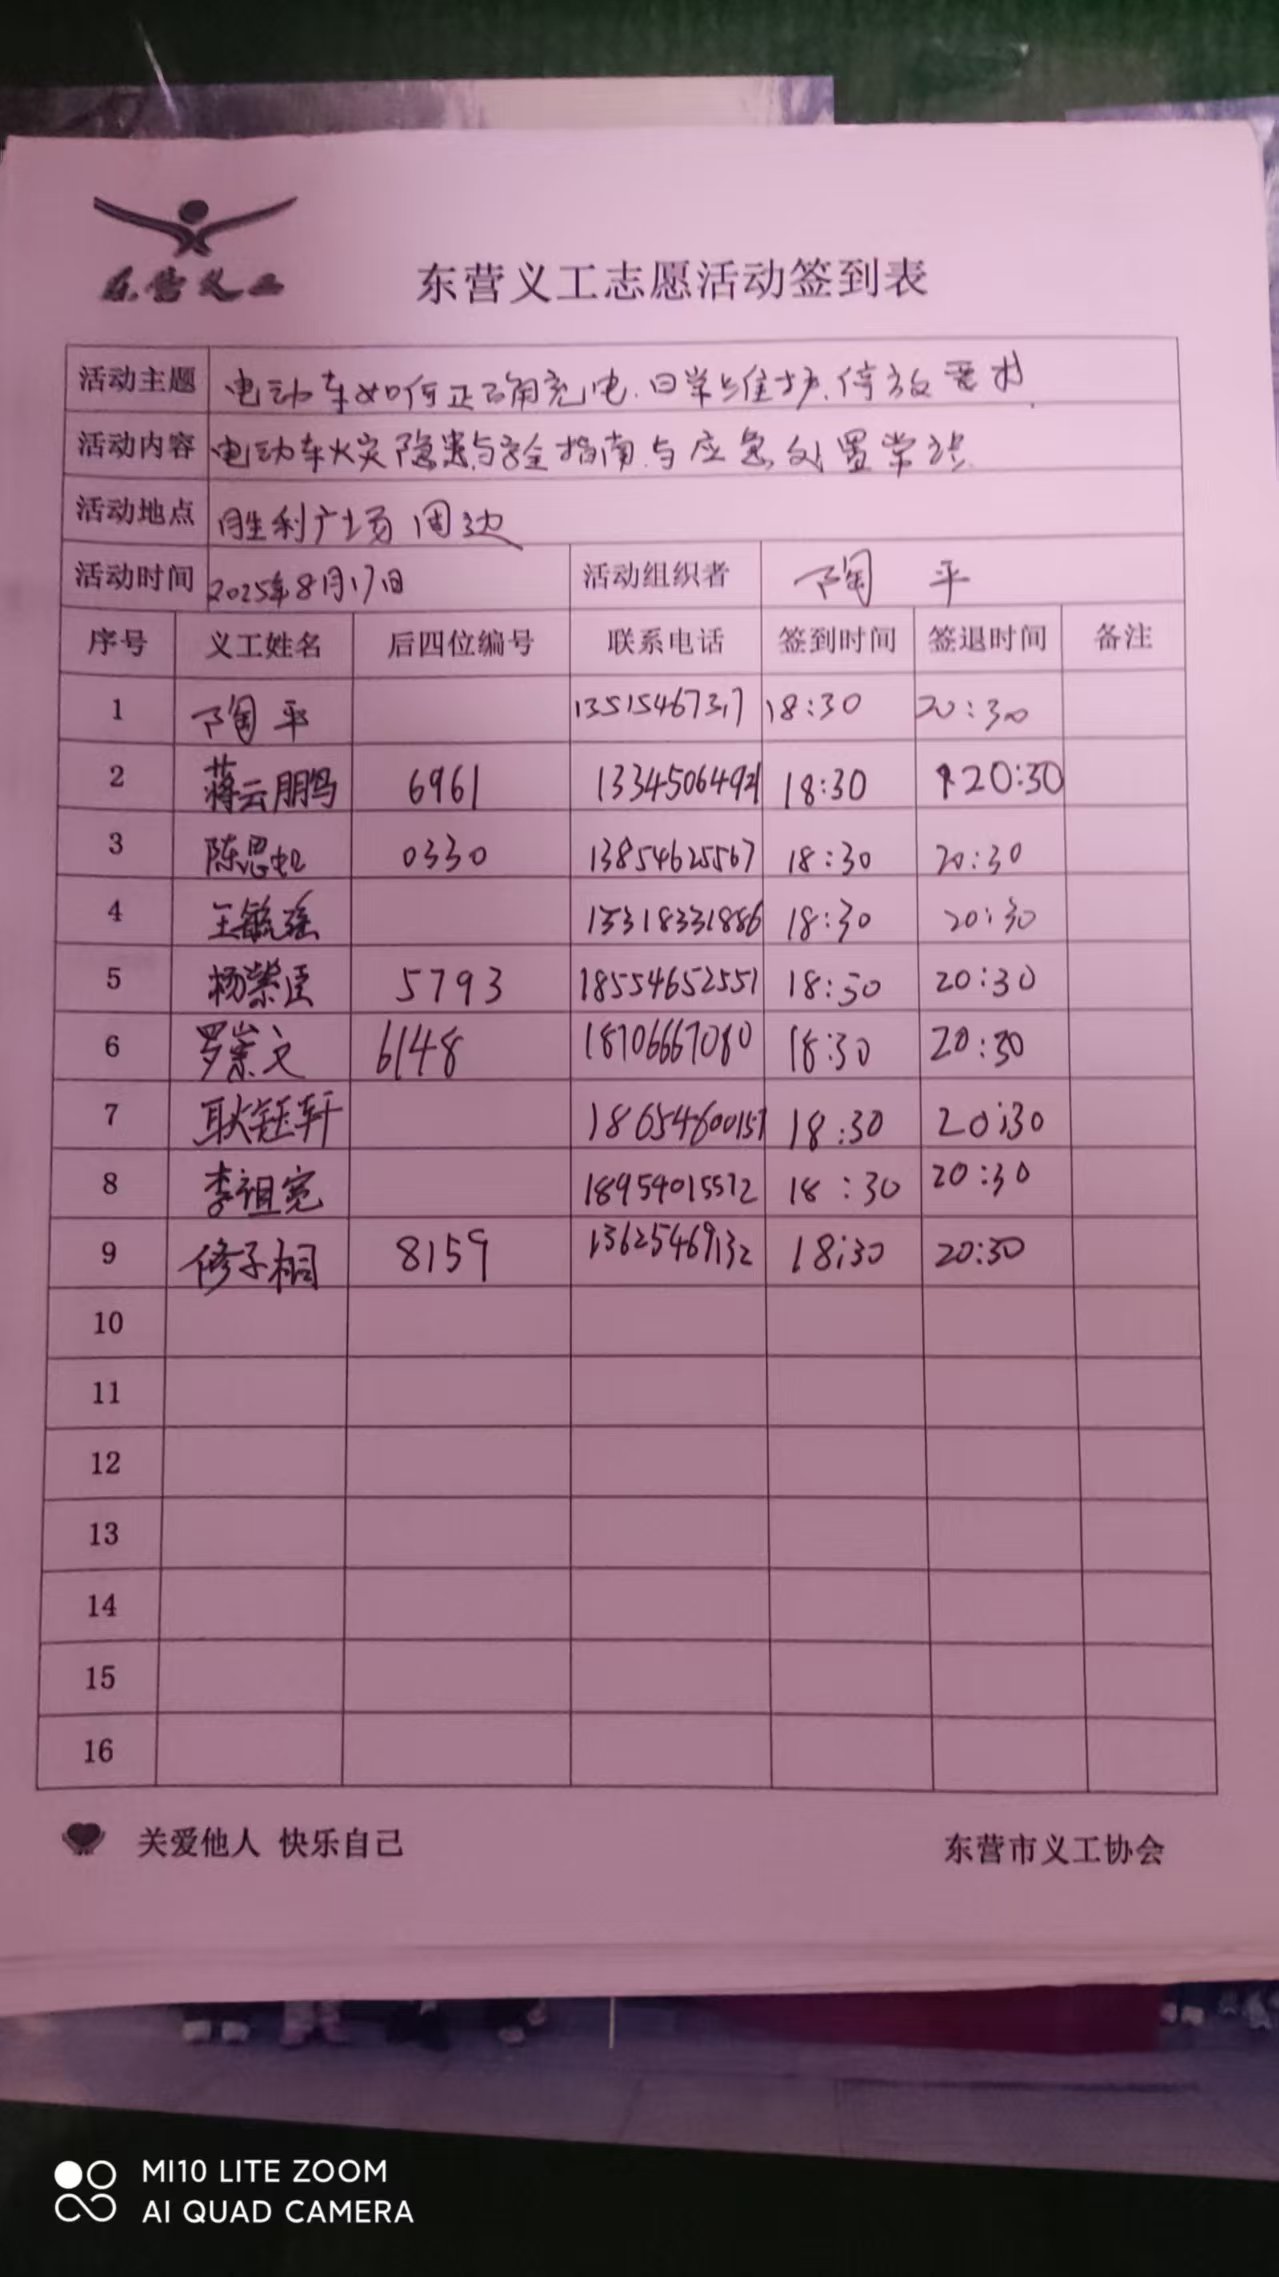 东营义工
东营义工志愿活动签到表
活动主题 电动车如何正确充电.日常维护.停放要求.
活动内容 电动车火灾隐患与安全指南与应急处置常识.
活动地点 胜利广场周边
活动时间 2025年8月17日 活动组织者 陶 平
序号 义工姓名 后四位编号 联系电话 签到时间 签退时间 备注
1 陶平 13515467317 18:30 20:30
2 蒋云鹏 6961 18:30 20:30
3 陈思 0330 13854625567 18:30 20:30
4 王毓瑶 18:30 20:30
5 杨紫臣 5793 18554652551 18:30 20:30
6 罗崇文 6148 18706667080 18:30 20:30
7 耿钰轩 18654600157 18:30 20:30
8 李祖宽 18:30 20:30
9 修子桐 8159 13625469132 18:30 20:30
10
11
12
13
14
15
16
关爱他人 快乐自己 东营市义工协会
MI10 LITE ZOOM
AI QUAD CAMERA